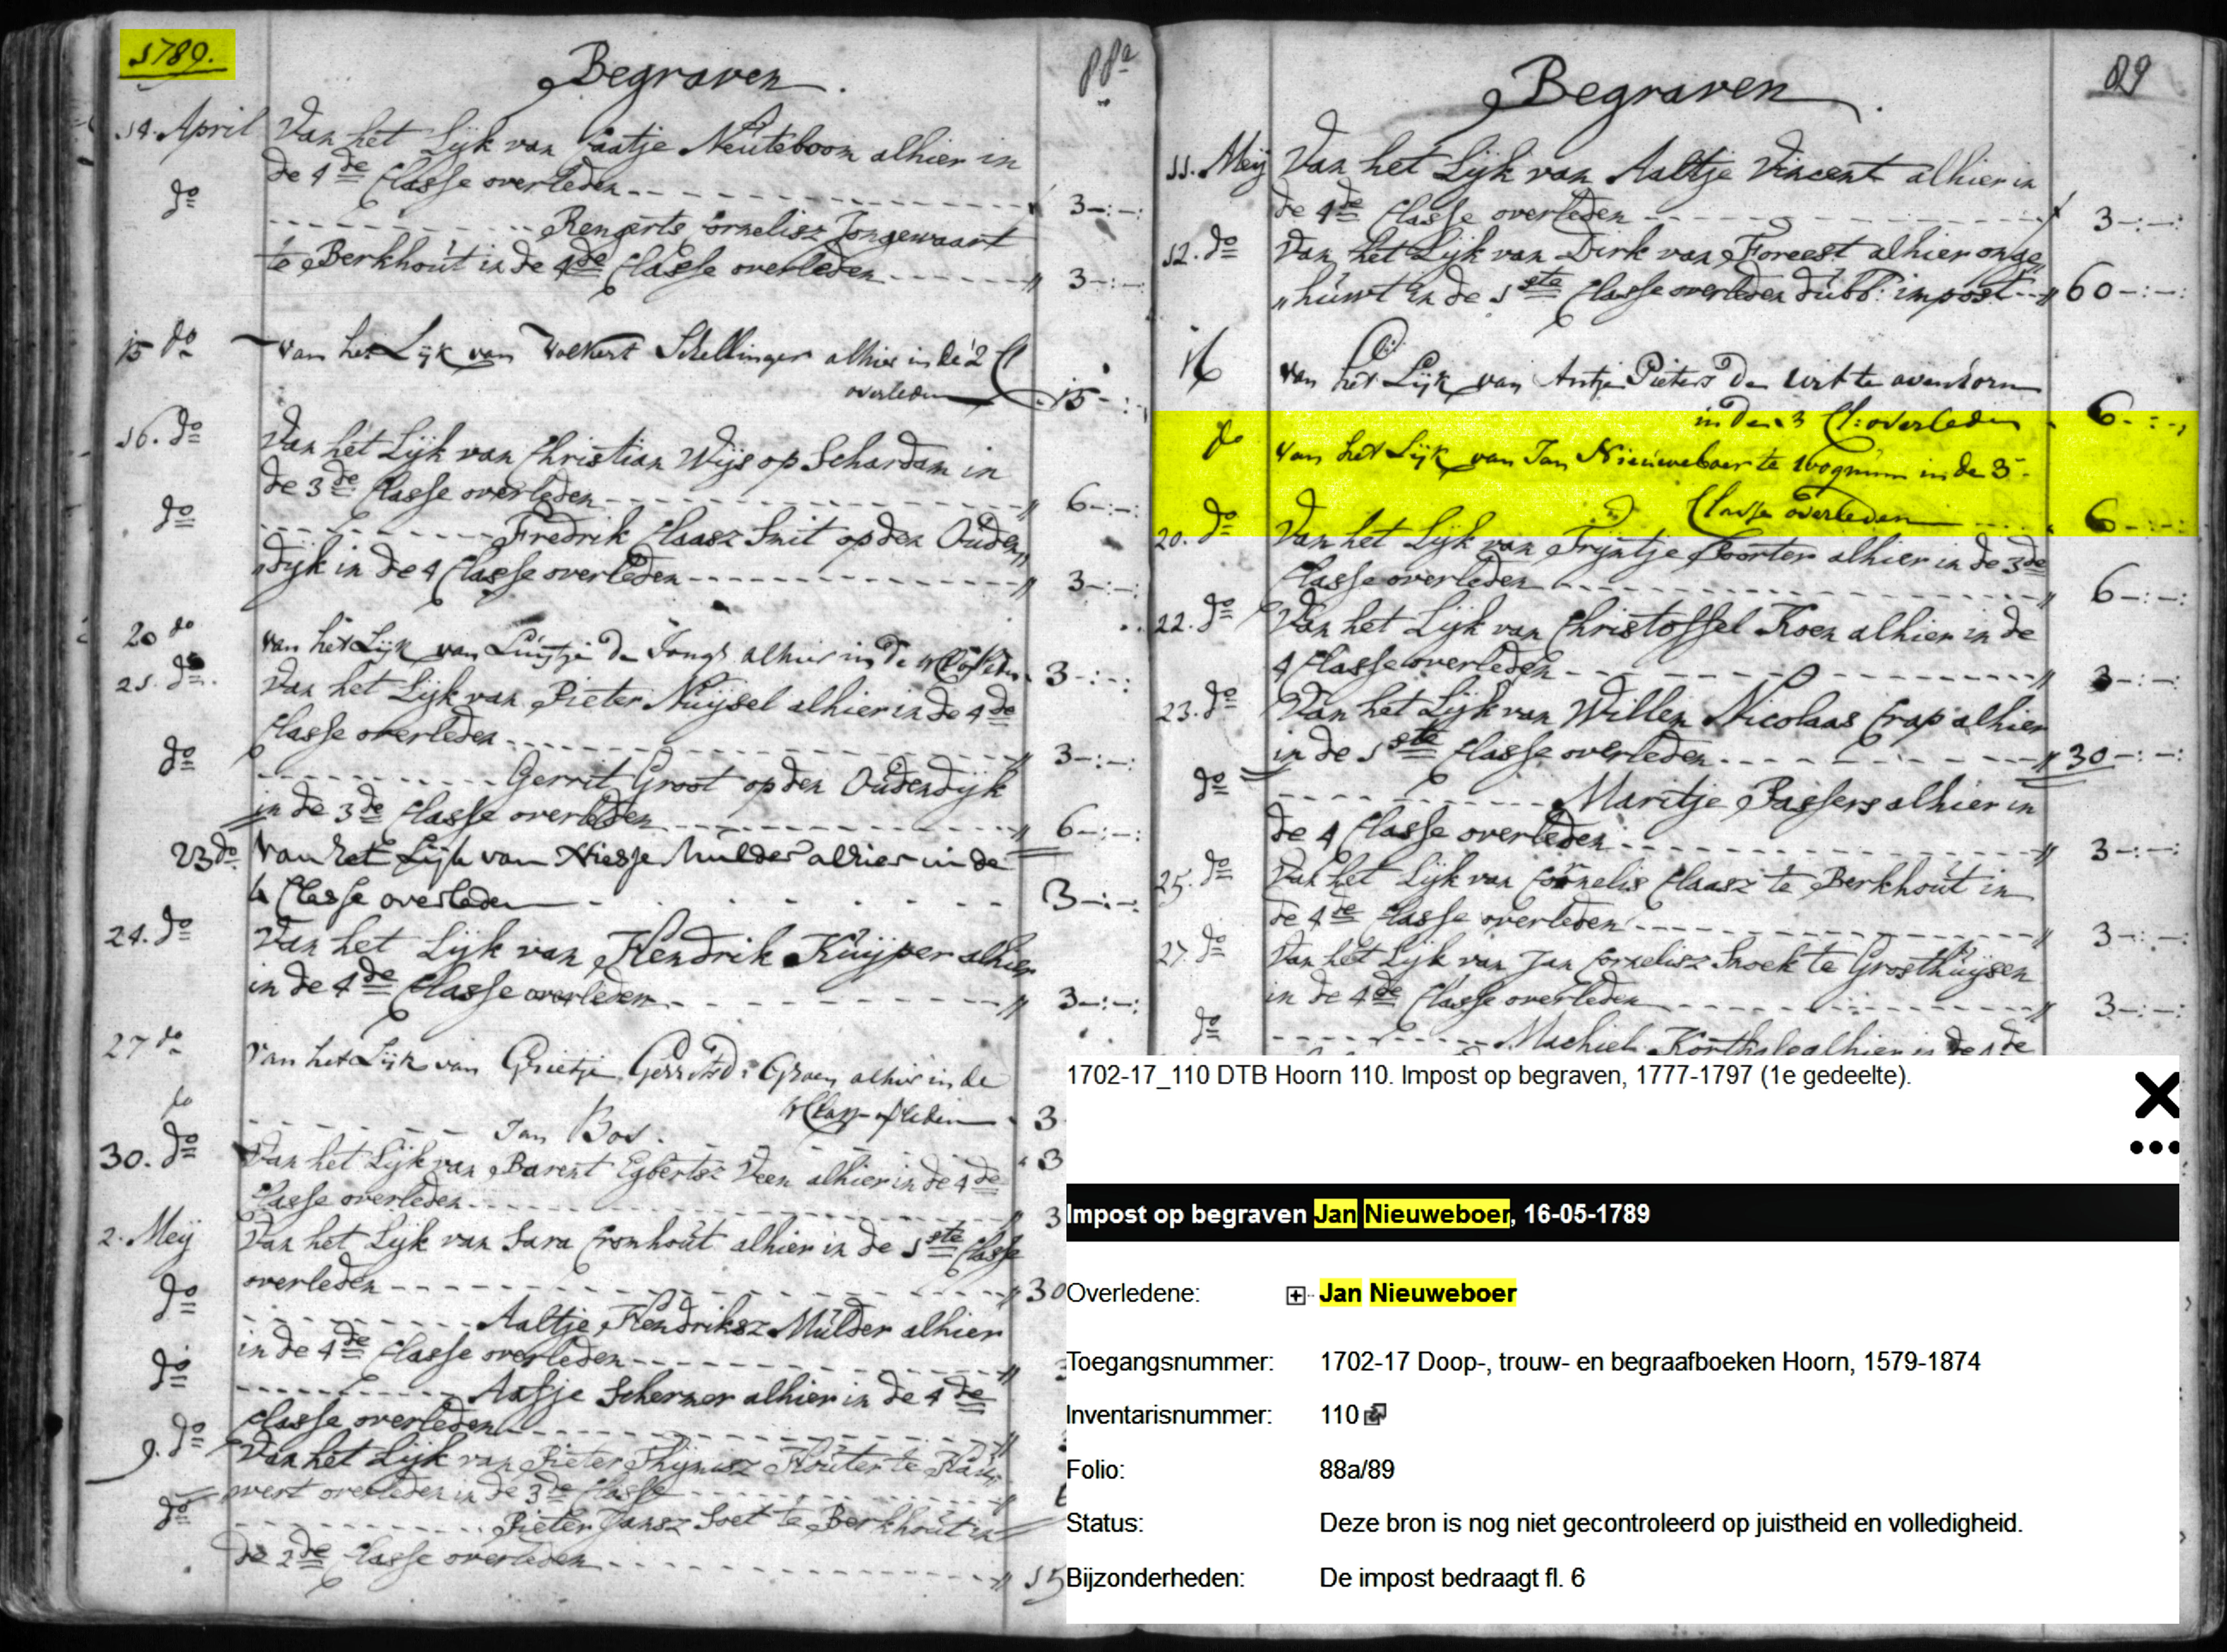 1789.
Begraven.
88a
14. April Van het Lijk van Aatje Neuteboom alhier in
de 4de Classe overleden 3-:-:
do Rengerts Cornelisz Jongewaart
te Berkhout in de 4de Classe overleden " 3-:-:
15 do van het Lijk van Volkert Schellinger alhier in de 2 Cl
overleden 15-:-
16. do Van het Lijk van Christian Wijs op Schardam in
de 3de Classe overleden " 6-:-:
do Fredrik Claasz Smit op den Ouden"
"dijk in de 4 Classe overleden " 3-:-:
20 do van het Lijk van Luijtje de Jongh alhier in de 3-:-:
21. do. Van het Lijk van Pieter Nuijsel alhier in de 4de
Classe overleden 3-:-:
do Gerrit Groot op den Oudendijk
in de 3de Classe overleden " 6-:-:
23 do Van het Lijk van Niesje Mulder alhier in de
4 Classe overleden 3-:-:
24. do Van het Lijk van Hendrik Kuijper alhier
in de 4de Classe overleden " 3-:-:
27 do Van het Lijk van Grietje Gerrits alhier in de
3
do Jan Bos. 3
30. do Van het Lijk van Barent Egbertsz Veen alhier in de 4de
Classe overleden " 3
2. Meij Van het Lijk van Sara Cromhout alhier in de 1ste Classe
overleden " 30
do Aaltje Hendriksz Mulder alhier
in de 4de Classe overleden "
do Aafje Schermer alhier in de 4de
Classe overleden "
9. do Van het Lijk van Pieter Thijmisz Houter te Hau"
wert overleden in de 3de Classe "
do Pieter Jansz Soet te Berkhout in
de 2de Classe overleden " 15
Begraven.
89
11. Meij Van het Lijk van Aaltje Vincent alhier in
de 4de Classe overleden 3-:-:
12. do Van het Lijk van Dirk van Foreest alhier onge"
"huwt in de 1ste Classe overleden dubb: impost " 60-:-:
16 van het Lijk van Antje Pieters de Wit te avenhorn
in den 3 Cl: overleden 6-:-,
do Van het Lijk van Jan Nieuweboer te Wognum in de 3-
Classe overleden 6-:-:
20. do Van het Lijk van Trijntje Poorter alhier in de 3de
Classe overleden " 6-:-:
22. do Van het Lijk van Christoffel Koen alhier in de
4 Classe overleden " 3-:-:
23. do Van het Lijk van Willem Nicolaas Crap alhier
in de 1ste Classe overleden " 30-:-:
do Maritje Passers alhier in
de 4 Classe overleden " 3-:-:
25. do Van het Lijk van Cornelis Claasz te Berkhout in
de 4de Classe overleden " 3-:-:
27. do Van het Lijk van Jan Cornelisz Snoek te Grosthuijsen
in de 4de Classe overleden " 3-:-:
do Machiel alhier in de
1702-17_110 DTB Hoorn 110. Impost op begraven, 1777-1797 (1e gedeelte).
Impost op begraven Jan Nieuweboer, 16-05-1789
Overledene: Jan Nieuweboer
Toegangsnummer: 1702-17 Doop-, trouw- en begraafboeken Hoorn, 1579-1874
Inventarisnummer: 110
Folio: 88a/89
Status: Deze bron is nog niet gecontroleerd op juistheid en volledigheid.
Bijzonderheden: De impost bedraagt fl. 6